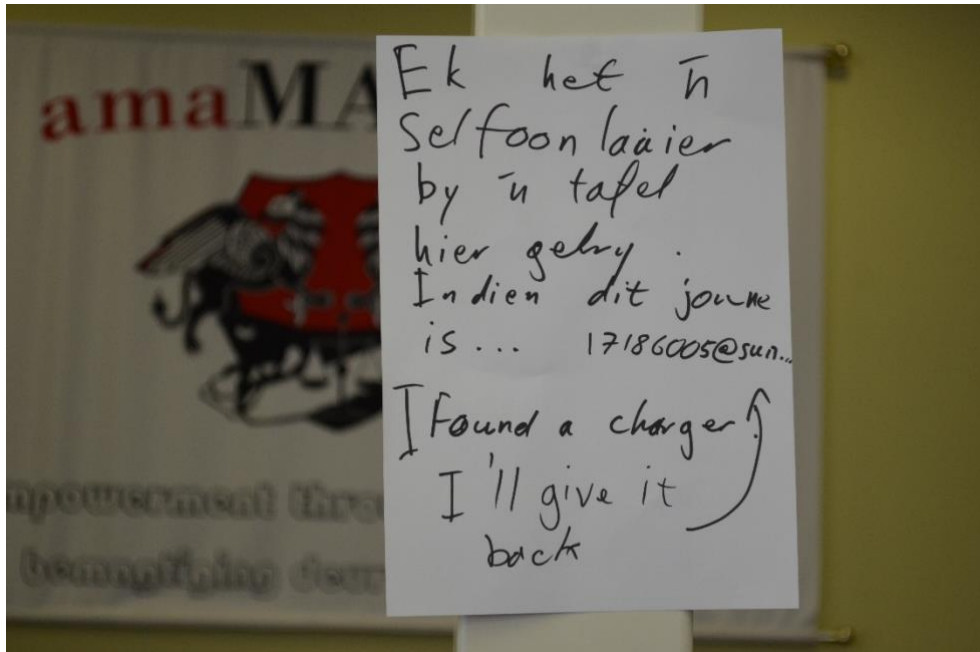 amaMA
Ek het 'n
Selfoonlaaier
by 'n tafel
hier gekry.
Indien dit joune
is... 17186005@sun...
I Found a charger!
I'll give it
back
mpowerment thro